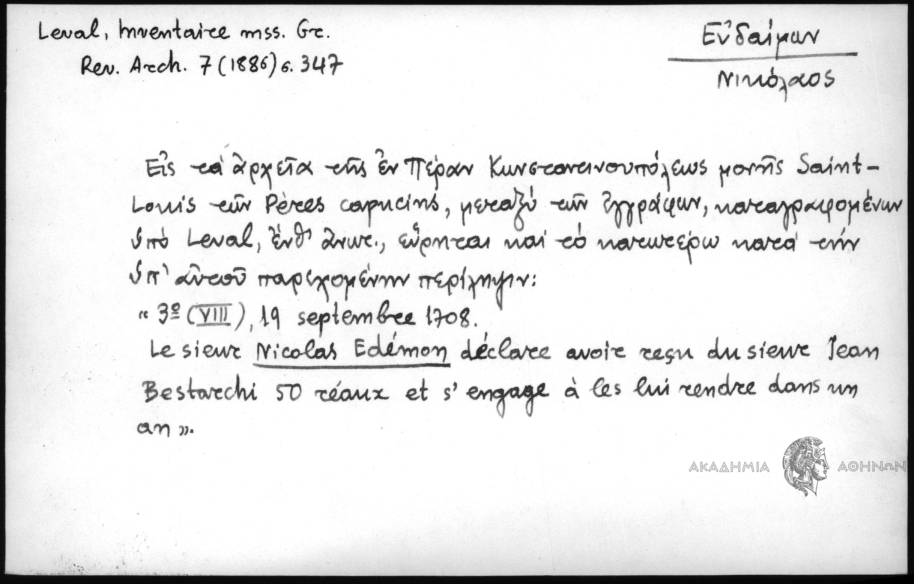 Leval, Inventaire mss. Gr.
Rev. Arch. 7 (1886) σ. 347
Εὐδαίμων
Νικόλαος
Εἰς τά ἀρχεῖα τῆς ἐν Πέραν Κωνσταντινουπόλεως μονῆς Saint-
Louis τῶν Pères capucins, μεταξύ τῶν ἐγγράφων, καταγραφομένων
ὑπό Leval, ἔνθ' ἀνωτ., εὕρηται καί τό κατωτέρω κατά τήν
ὑπ' αὐτοῦ παρεχομένην περίληψιν:
" 3º (VIII), 19 septembre 1708.
Le sieur Nicolas Edémon déclare avoir reçu du sieur Jean
Bestarchi 50 réaux et s'engage à les lui rendre dans un
an ».
ΑΚΑΔΗΜΙΑ ΑΘΗΝΩΝ